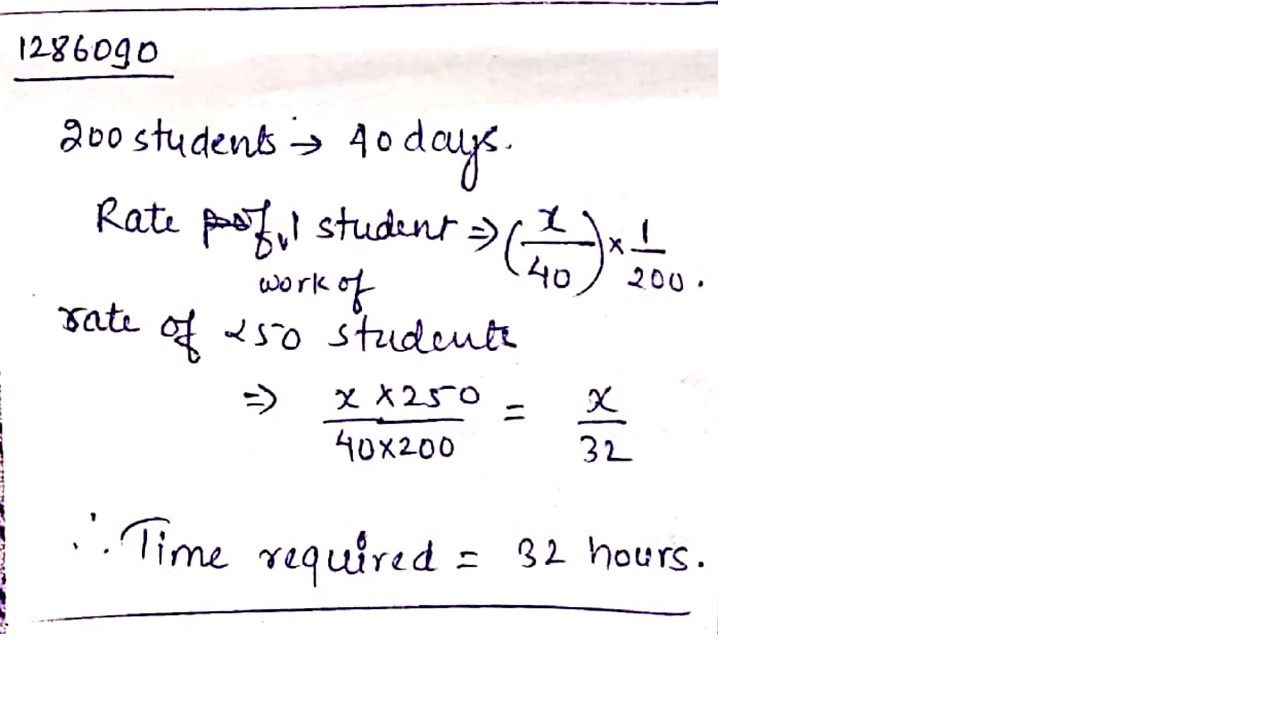 1286090
200 students → 40 days.
Rate of 1 student ⇒ (x/40) × 1/200.
work of
rate of 250 students
⇒ x × 250 / 40×200 = x/32
∴ Time required = 32 hours.